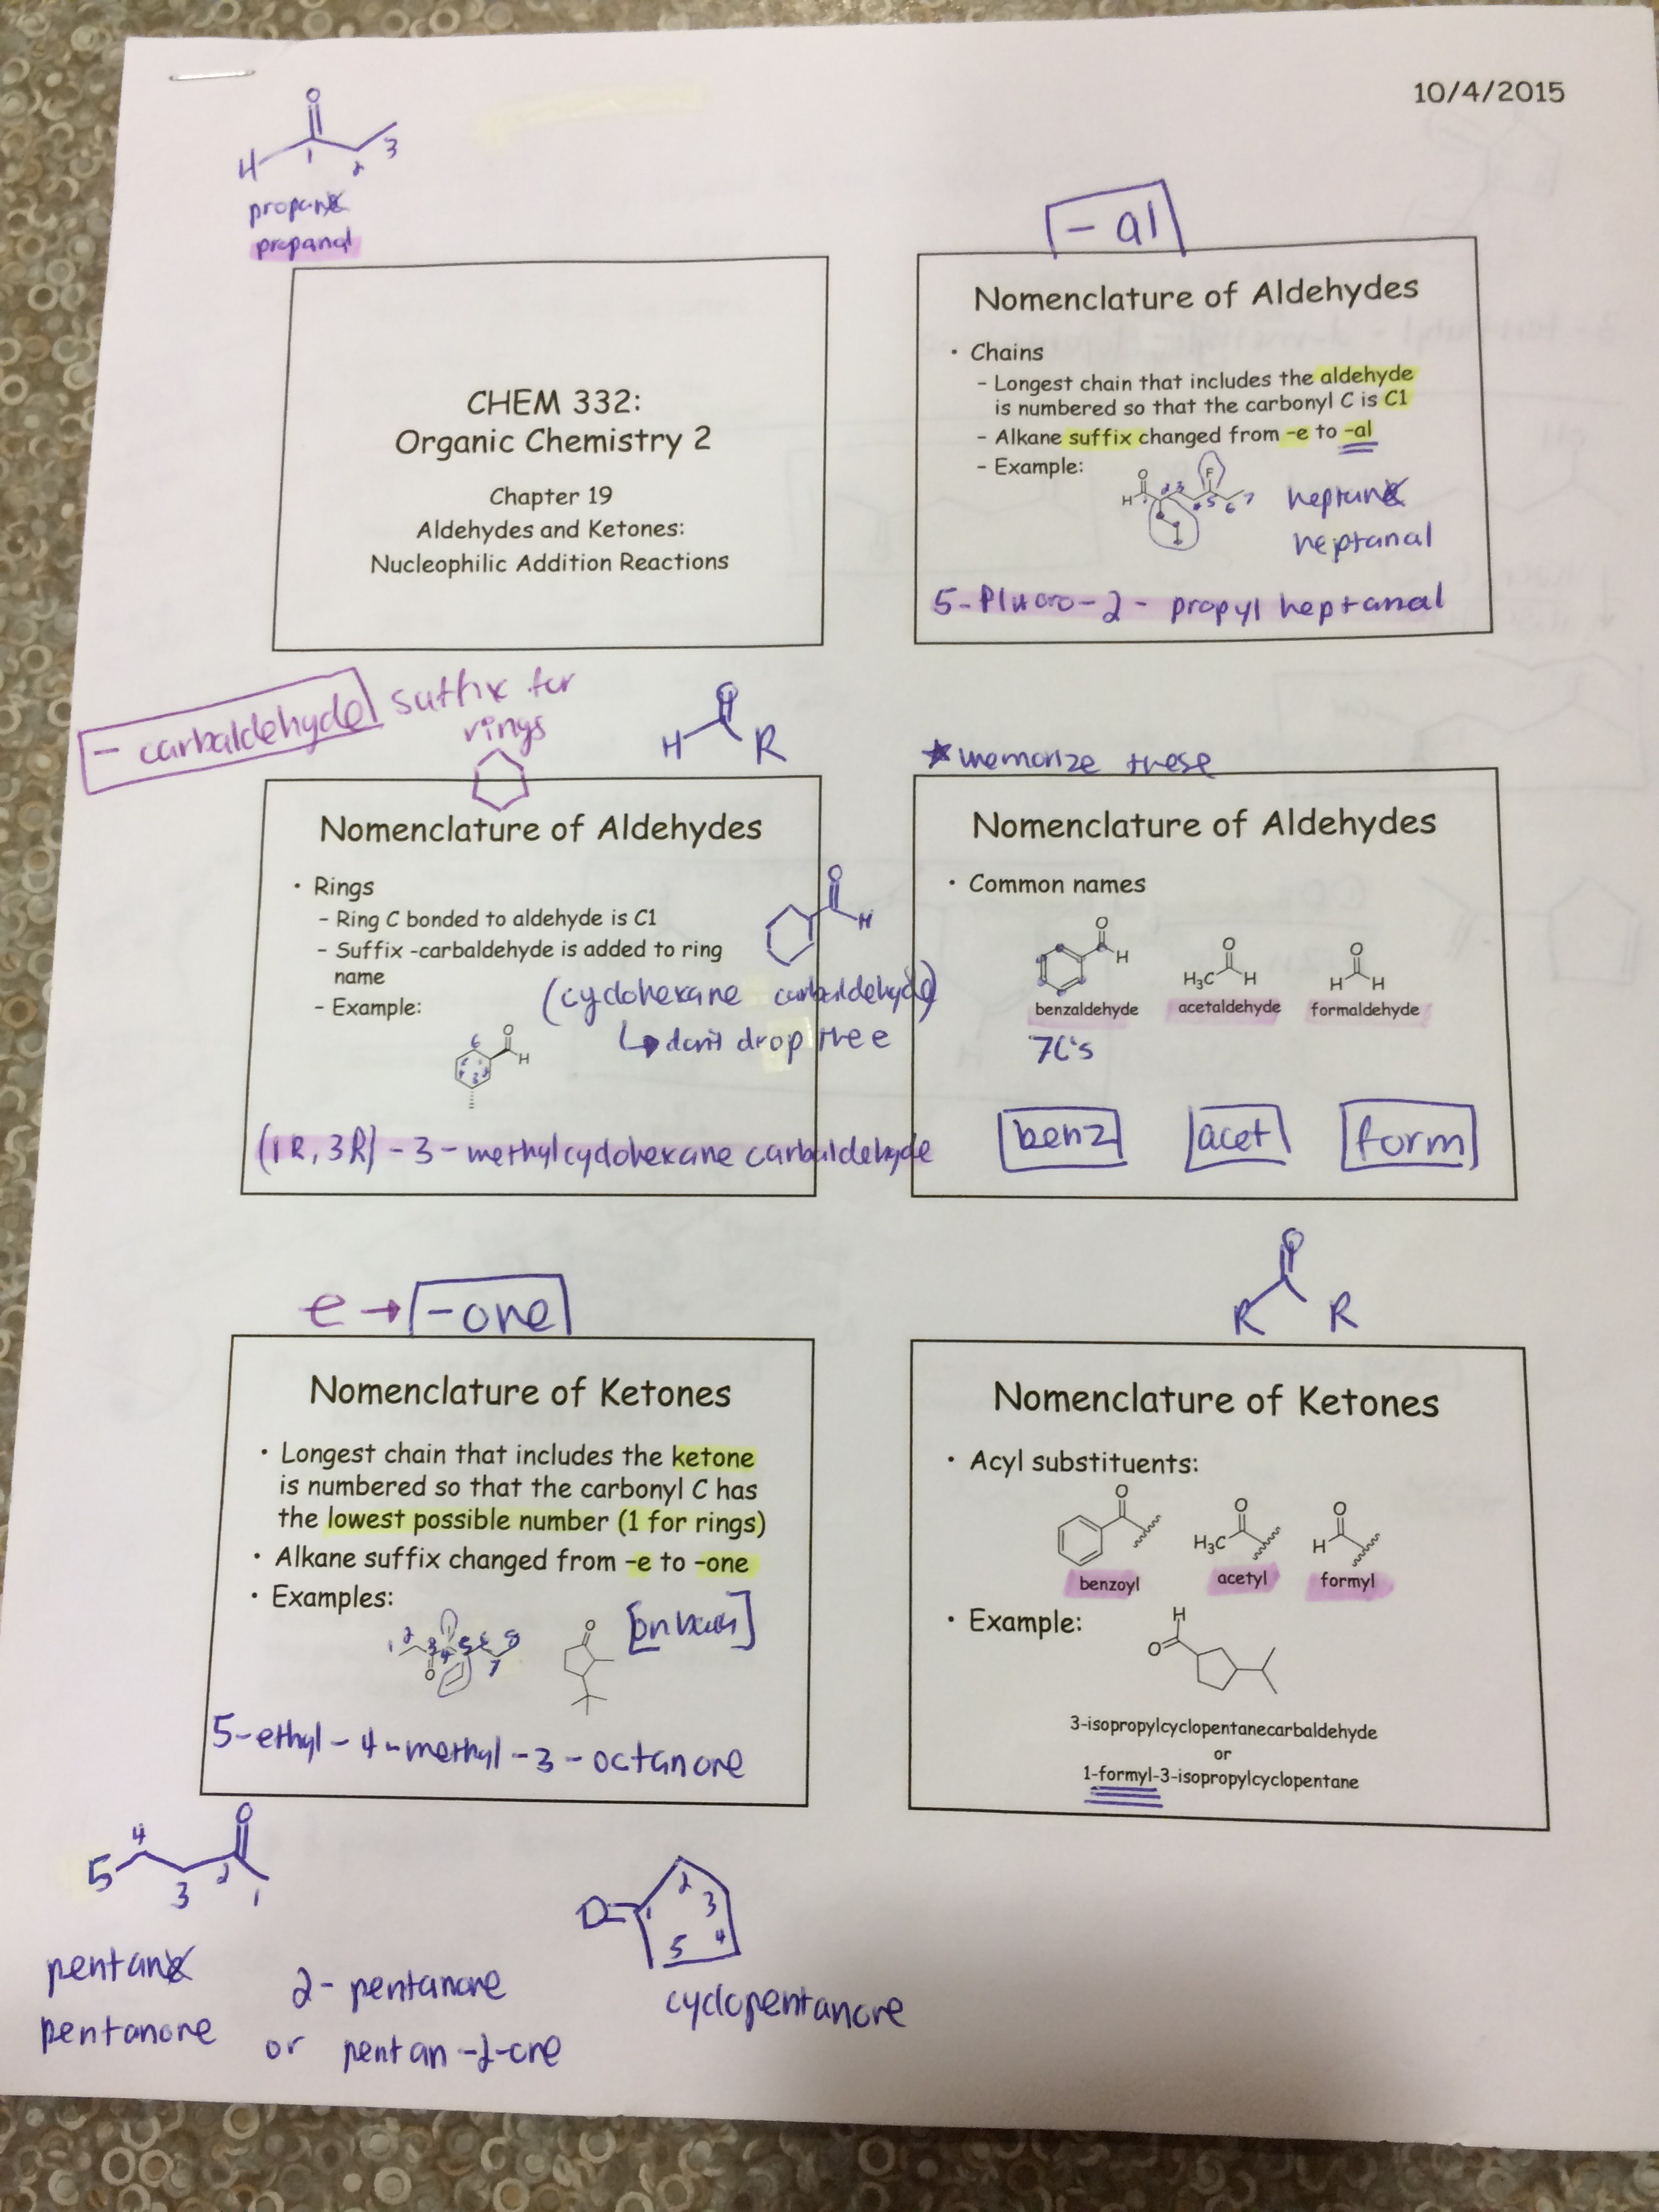 10/4/2015
O
H
1
2
3
propane
propanal
CHEM 332:
Organic Chemistry 2
Chapter 19
Aldehydes and Ketones:
Nucleophilic Addition Reactions
-al
Nomenclature of Aldehydes
• Chains
- Longest chain that includes the aldehyde
is numbered so that the carbonyl C is C1
- Alkane suffix changed from -e to -al
- Example:
O
F
H
2 3
4 5 6 7
heptane
heptanal
5-Fluoro-2-propyl heptanal
-carbaldehyde suffix for
rings
O
H R
Nomenclature of Aldehydes
• Rings
- Ring C bonded to aldehyde is C1
- Suffix -carbaldehyde is added to ring
name
- Example:
O
H
(cyclohexane carbaldehyde)
↳ don't drop the e
6
O
H
(1R, 3R)-3-methylcyclohexane carbaldehyde
* memorize these
Nomenclature of Aldehydes
• Common names
O
H
O
H₃C H
O
H H
benzaldehyde acetaldehyde formaldehyde
7C's
benz acet form
e → -one
Nomenclature of Ketones
• Longest chain that includes the ketone
is numbered so that the carbonyl C has
the lowest possible number (1 for rings)
• Alkane suffix changed from -e to -one
• Examples:
1 2 3 4 5 6 7 8
O
O
[on back]
5-ethyl-4-methyl-3-octanone
O
R R
Nomenclature of Ketones
• Acyl substituents:
O
O
H₃C
O
H
benzoyl acetyl formyl
• Example:
H
O
3-isopropylcyclopentanecarbaldehyde
or
1-formyl-3-isopropylcyclopentane
O
5 4 3 2 1
pentane
pentanone
2-pentanone
or pentan-2-one
O
1 2 3 4 5
cyclopentanone